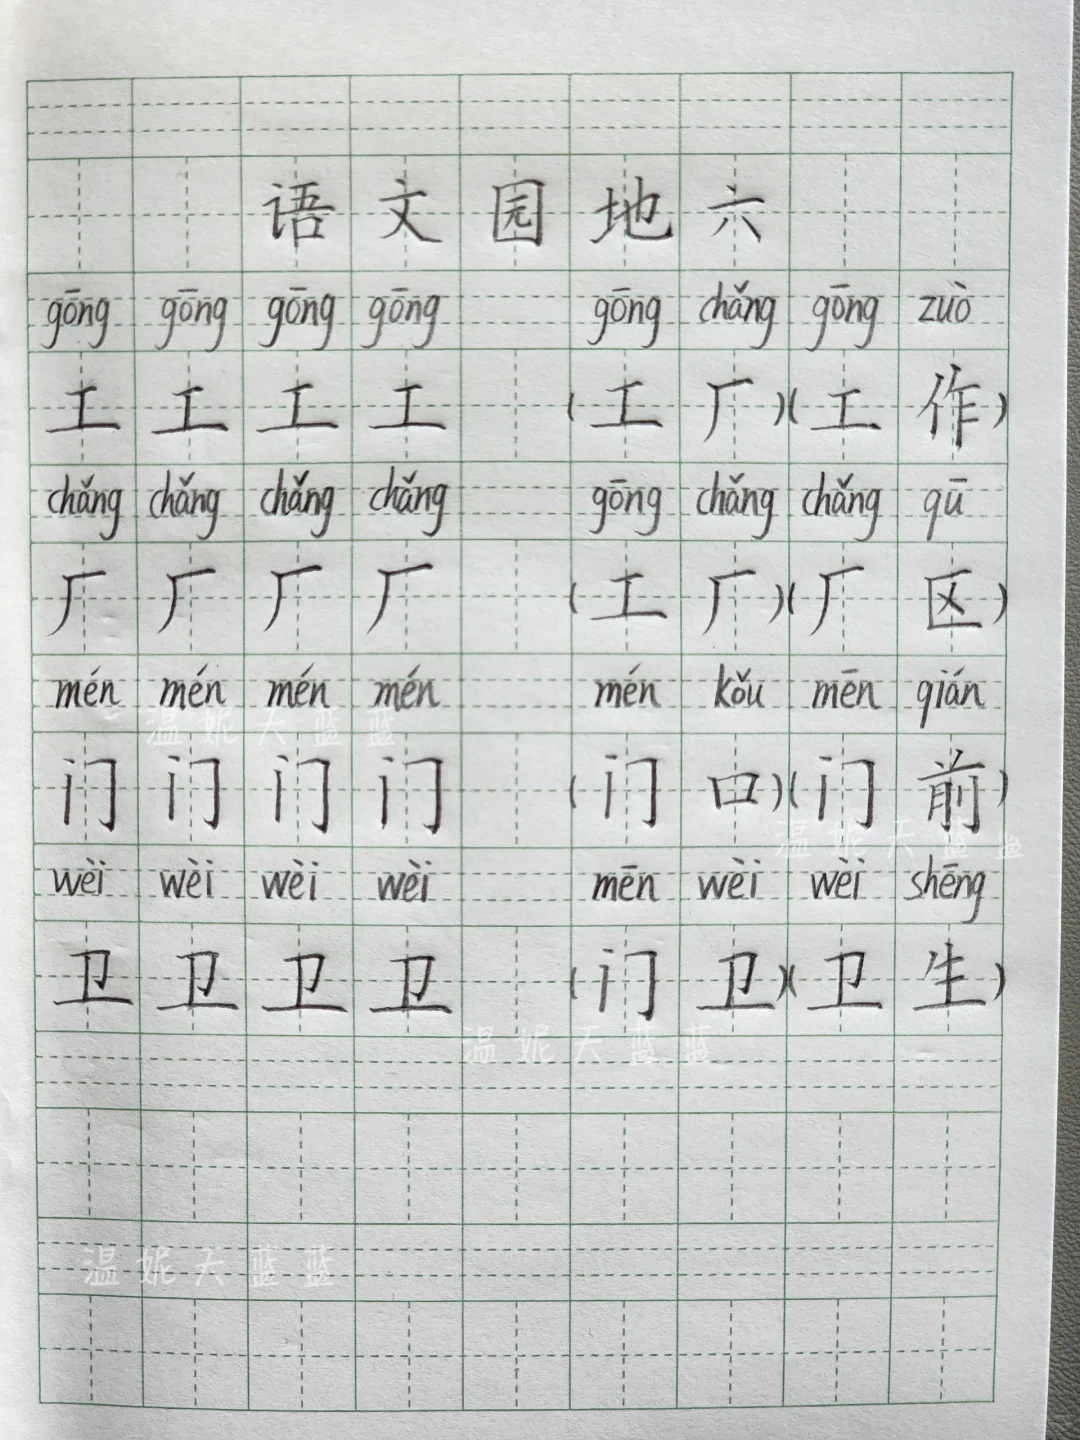 语文园地六
gōng gōng gōng gōng gōng chǎng gōng zuò
工 工 工 工 (工 厂)(工 作)
chǎng chǎng chǎng chǎng gōng chǎng chǎng qū
厂 厂 厂 厂 (工 厂)(厂 区)
mén mén mén mén mén kǒu mēn qián
门 门 门 门 (门 口)(门 前)
温妮天蓝蓝
温妮天蓝蓝
wèi wèi wèi wèi mēn wèi wèi shēng
卫 卫 卫 卫 (门 卫)(卫 生)
温妮天蓝蓝
温妮天蓝蓝